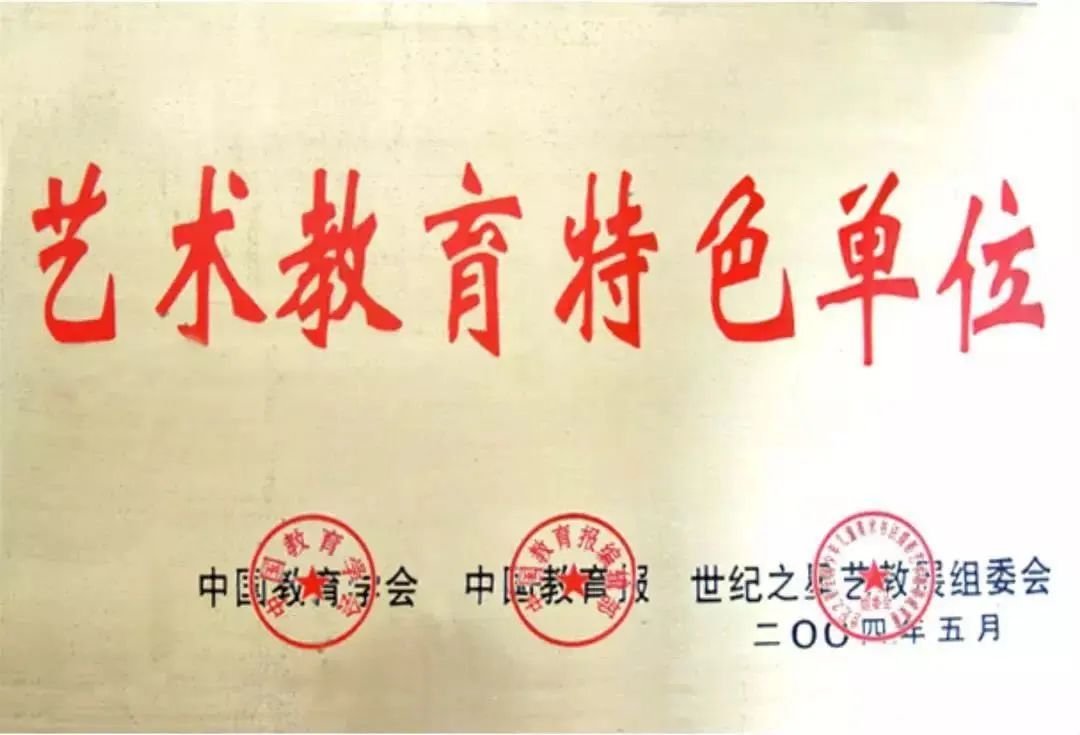 艺术教育特色单位
中国教育学会 中国教育报 世纪之星艺教展组委会
二〇〇四年五月
中国教育学会
中国教育报编辑部
组委会